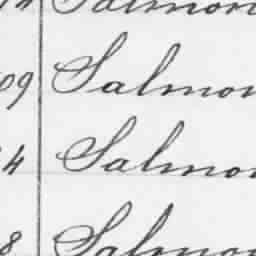 Salmon
09 Salmon
4 Salmon
8 Salmon